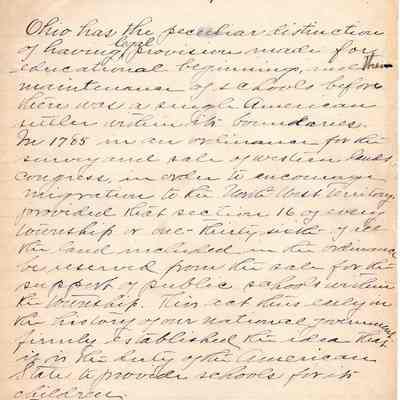 Ohio has the peculiar distinction
of having legal provision made for
educational beginnings, and the
maintenance of schools before
there was a single American
settler within its boundaries.
In 1785 in an ordinance for the
survey and sale of western lands
Congress, in order to encourage
migration to the North West Territory
provided that section 16 of every
township or one-thirty sixth of all
the land included in the ordinance
be reserved from the sale for the
support of public schools within
the township. This act thus early in
the history of our national government
firmly established the idea that
it is the duty of the American
State to provide schools for its
children.